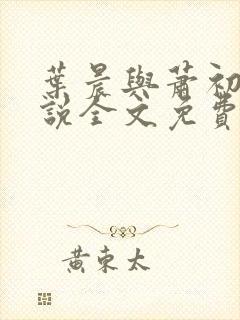 葉晨與蕭初
說全文免費
黃東太